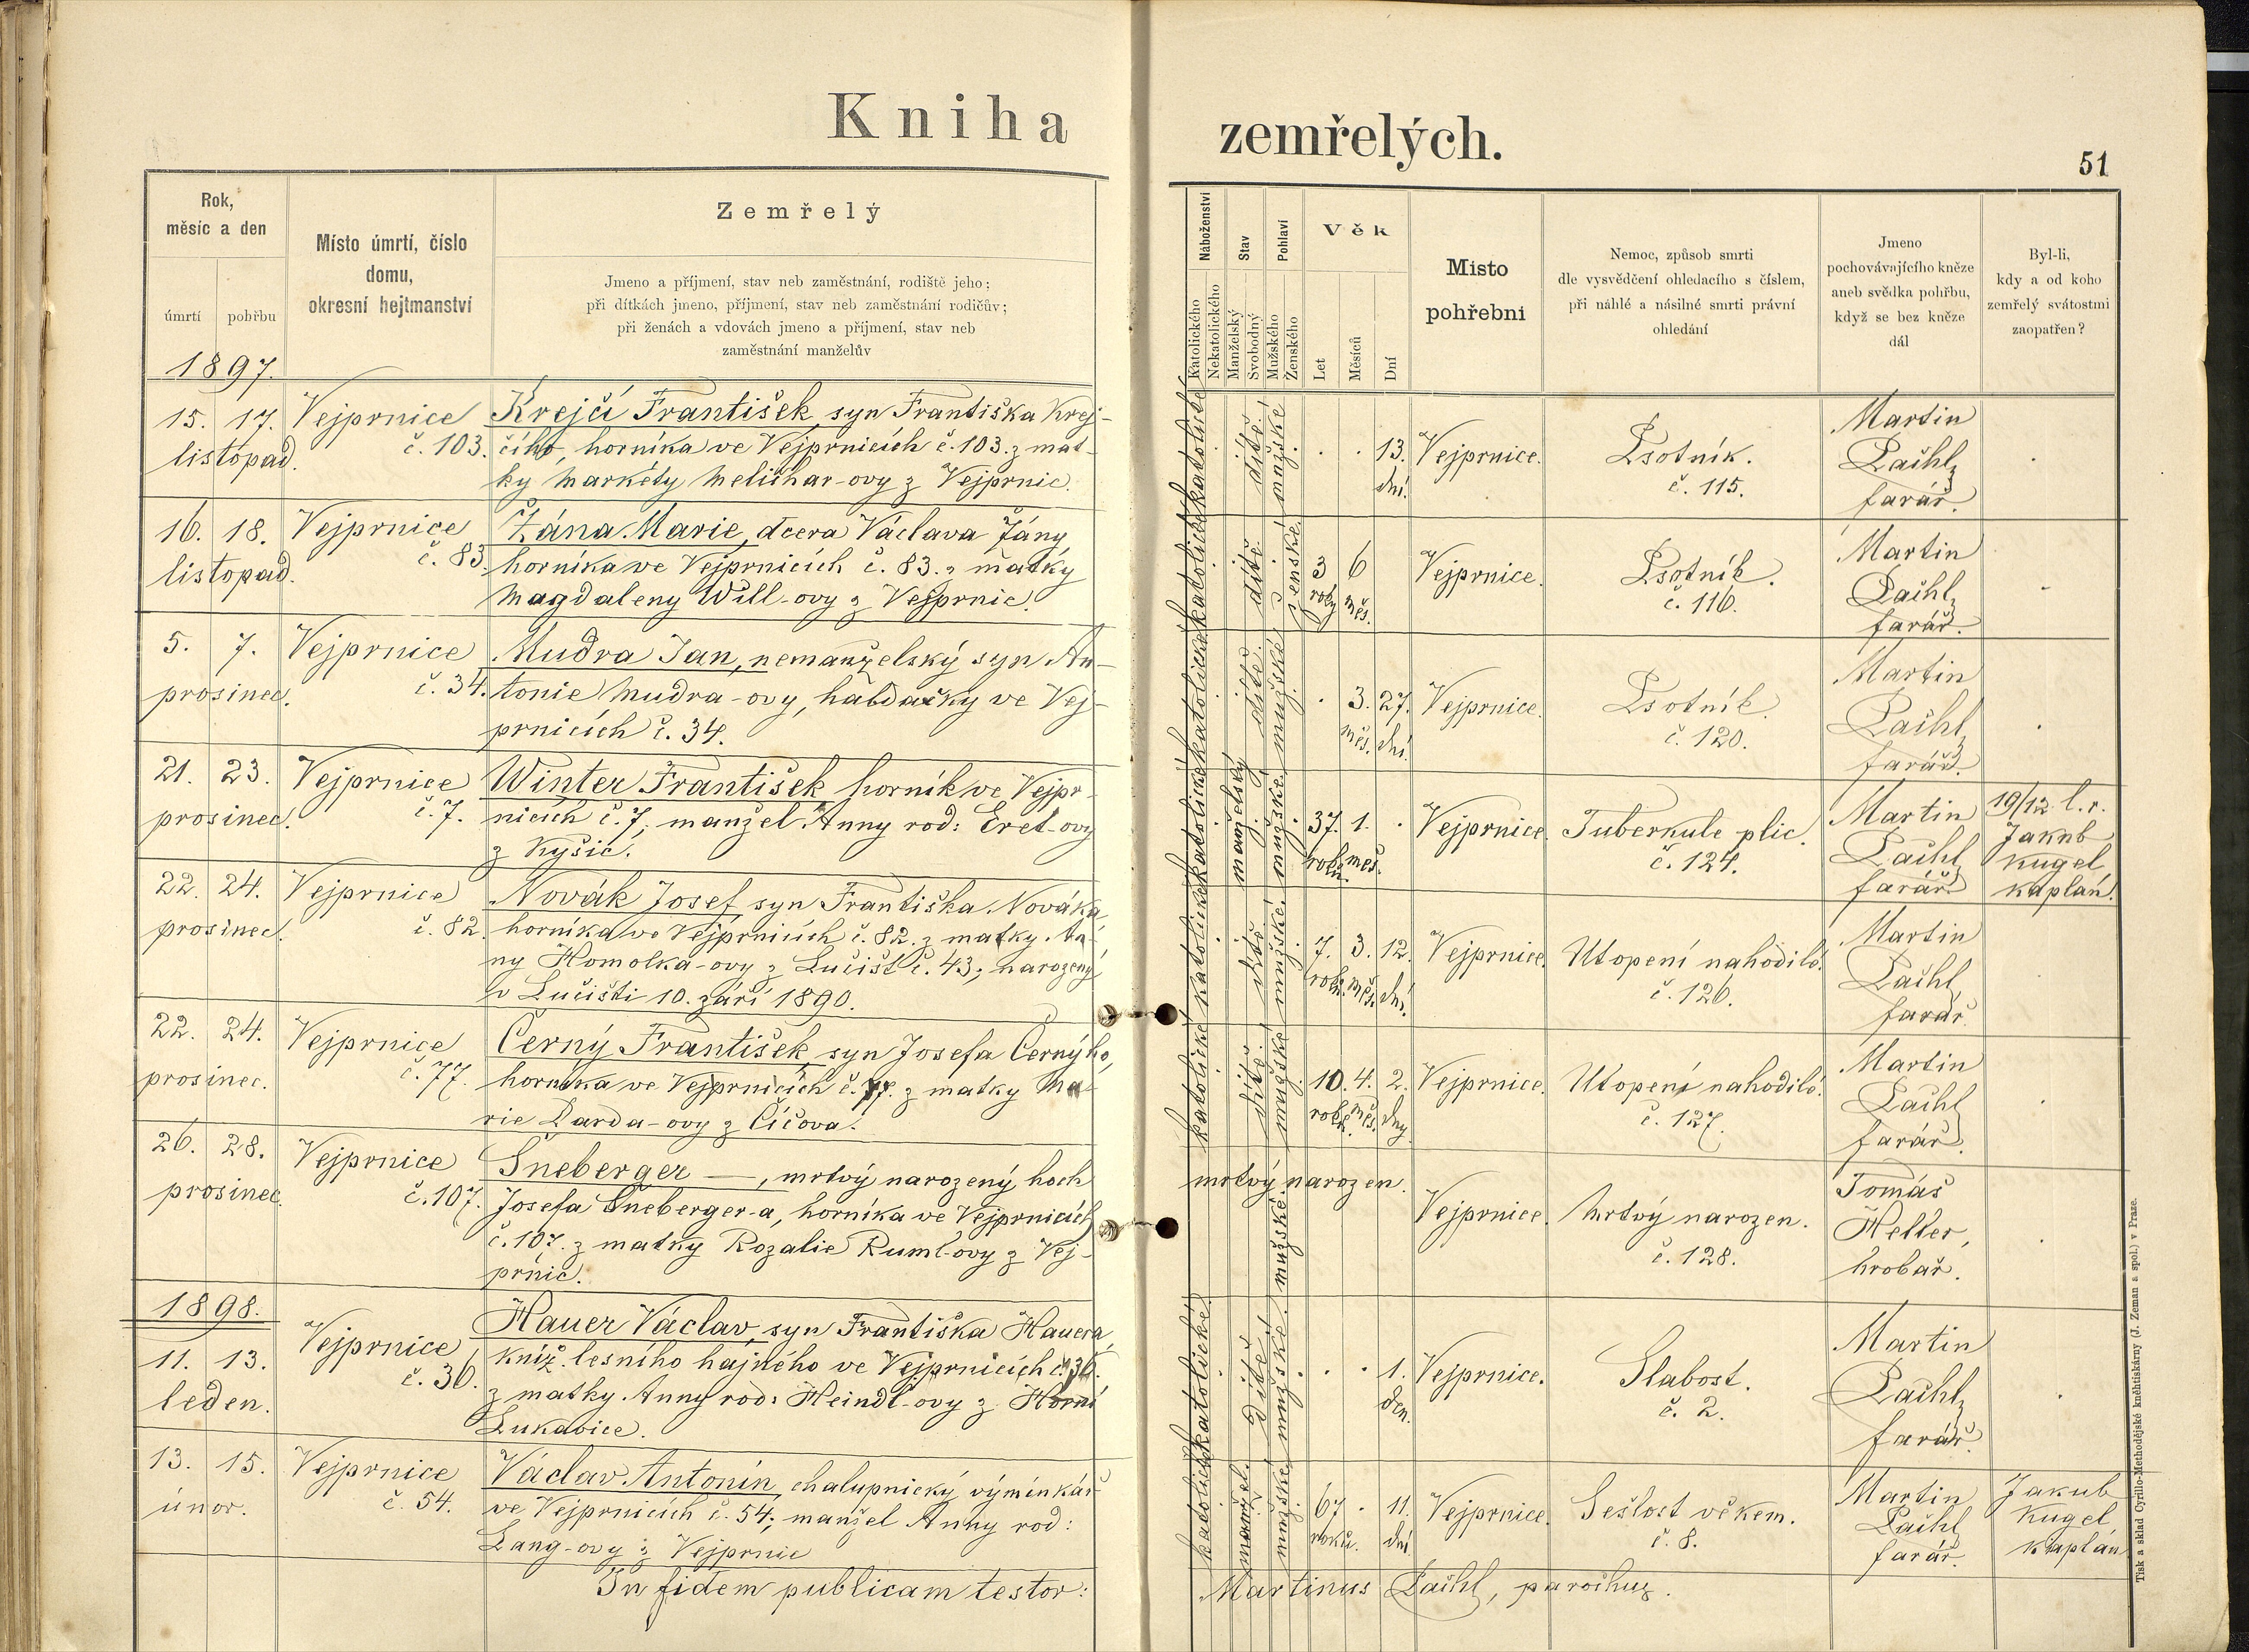 Kniha zemřelých.
51
Rok,
měsíc a den
úmrtí
pohřbu
Místo úmrtí, číslo
domu,
okresní hejtmanství
Zemřelý
Jmeno a příjmení, stav neb zaměstnání, rodiště jeho;
při dítkách jmeno, příjmení, stav neb zaměstnání rodičův;
při ženách a vdovách jmeno a příjmení, stav neb
zaměstnání manželův
Náboženství
Katolického
Nekatolického
Stav
Manželský
Svobodný
Pohlaví
Mužského
Ženského
Věk
Let
Měsíců
Dní
Místo
pohřební
Nemoc, způsob smrti
dle vysvědčení ohledacího s číslem,
při náhlé a násilné smrti právní
ohledání
Jmeno
pochovávajícího kněze
aneb svědka pohřbu,
když se bez kněze
dál
Byl-li,
kdy a od koho
zemřelý svátostmi
zaopatřen?
1897.
15. 17.
listopad.
Vejprnice
č. 103.
Krejčí František, syn Františka Krej-
čího, horníka ve Vejprnicích č. 103. z mat-
ky Markéty Melichar-ovy z Vejprnic.
katolické
dítě.
mužské
13.
dní.
Vejprnice.
Psotník.
č. 115.
Martin
Pachl,
farář.
16. 18.
listopad.
Vejprnice
č. 83.
Žána Marie, dcera Václava Žány
horníka ve Vejprnicích č. 83. z matky
Magdaleny Will-ovy z Vejprnic.
katolické
dítě.
ženské.
3 6
roky měs.
Vejprnice.
Psotník.
č. 116.
Martin
Pachl,
farář.
5. 7.
prosinec.
Vejprnice
č. 34.
Mudra Jan, nemanželský syn An-
tonie Mudra-ovy, haldačky ve Vej-
prnicích č. 34.
katolické
dítě.
mužské
3. 27.
měs. dní.
Vejprnice.
Psotník.
č. 120.
Martin
Pachl,
farář.
21. 23.
prosinec.
Vejprnice
č. 7.
Winter František horník ve Vejpr-
nicích č. 7, manžel Anny rod: Eret-ovy
z Kyšic.
katolické
manželský
mužské.
37. 1.
roků měs.
Vejprnice.
Tuberkule plic.
č. 124.
Martin
Pachl,
farář.
19/12 l. r.
Jakub
Kugel
kaplan.
22. 24.
prosinec.
Vejprnice
č. 82.
Novák Josef, syn Františka Nováka,
horníka ve Vejprnicích č. 82. z matky An-
ny Homolka-ovy z Lučišt č. 43; narozený
v Lučišti 10. září 1890.
katolické
dítě.
mužské
7. 3. 12.
roků. měs. dní.
Vejprnice.
Utopení nahodilé.
č. 126.
Martin
Pachl,
farář.
22. 24.
prosinec.
Vejprnice
č. 77.
Černý František, syn Josefa Černýho,
horníka ve Vejprnicích č. 77. z matky Ma-
rie Darda-ovy z Číčova.
katolické
dítě.
mužské
10. 4. 2.
roků. měs. dny.
Vejprnice.
Utopení nahodilé.
č. 127.
Martin
Pachl,
farář.
26. 28.
prosinec.
Vejprnice
č. 107.
Šneberger —, mrtvý narozený hoch
Josefa Šneberger-a, horníka ve Vejprnicích
č. 107. z matky Rozalie Ruml-ovy z Vej-
prnic.
mrtvý narozen.
mužské.
Vejprnice.
Mrtvý narozen.
č. 128.
Tomáš
Helter,
hrobař.
1898.
11. 13.
leden.
Vejprnice
č. 36.
Hauer Václav, syn Františka Hauera,
kníž. lesního hajného ve Vejprnicích č. 36.
z matky Anny rod: Heindl-ovy z Horní
Lukavice.
katolické
dítě.
mužské.
1.
den.
Vejprnice.
Slabost.
č. 2.
Martin
Pachl,
farář.
13. 15.
únor.
Vejprnice
č. 54.
Václav Antonín, chalupnický výminkář
ve Vejprnicích č. 54; manžel Anny rod:
Lang-ovy z Vejprnic
katolické
manžel.
mužské
67 11.
roků. dní
Vejprnice.
Sešlost věkem.
č. 8.
Martin
Pachl,
farář.
Jakub
Kugel
kaplán
In fidem publicam testor:
Martinus Pachl, parochus.
Tisk a sklad Cyrillo-Methodějské knihtiskárny (J. Zeman a spol.) v Praze.